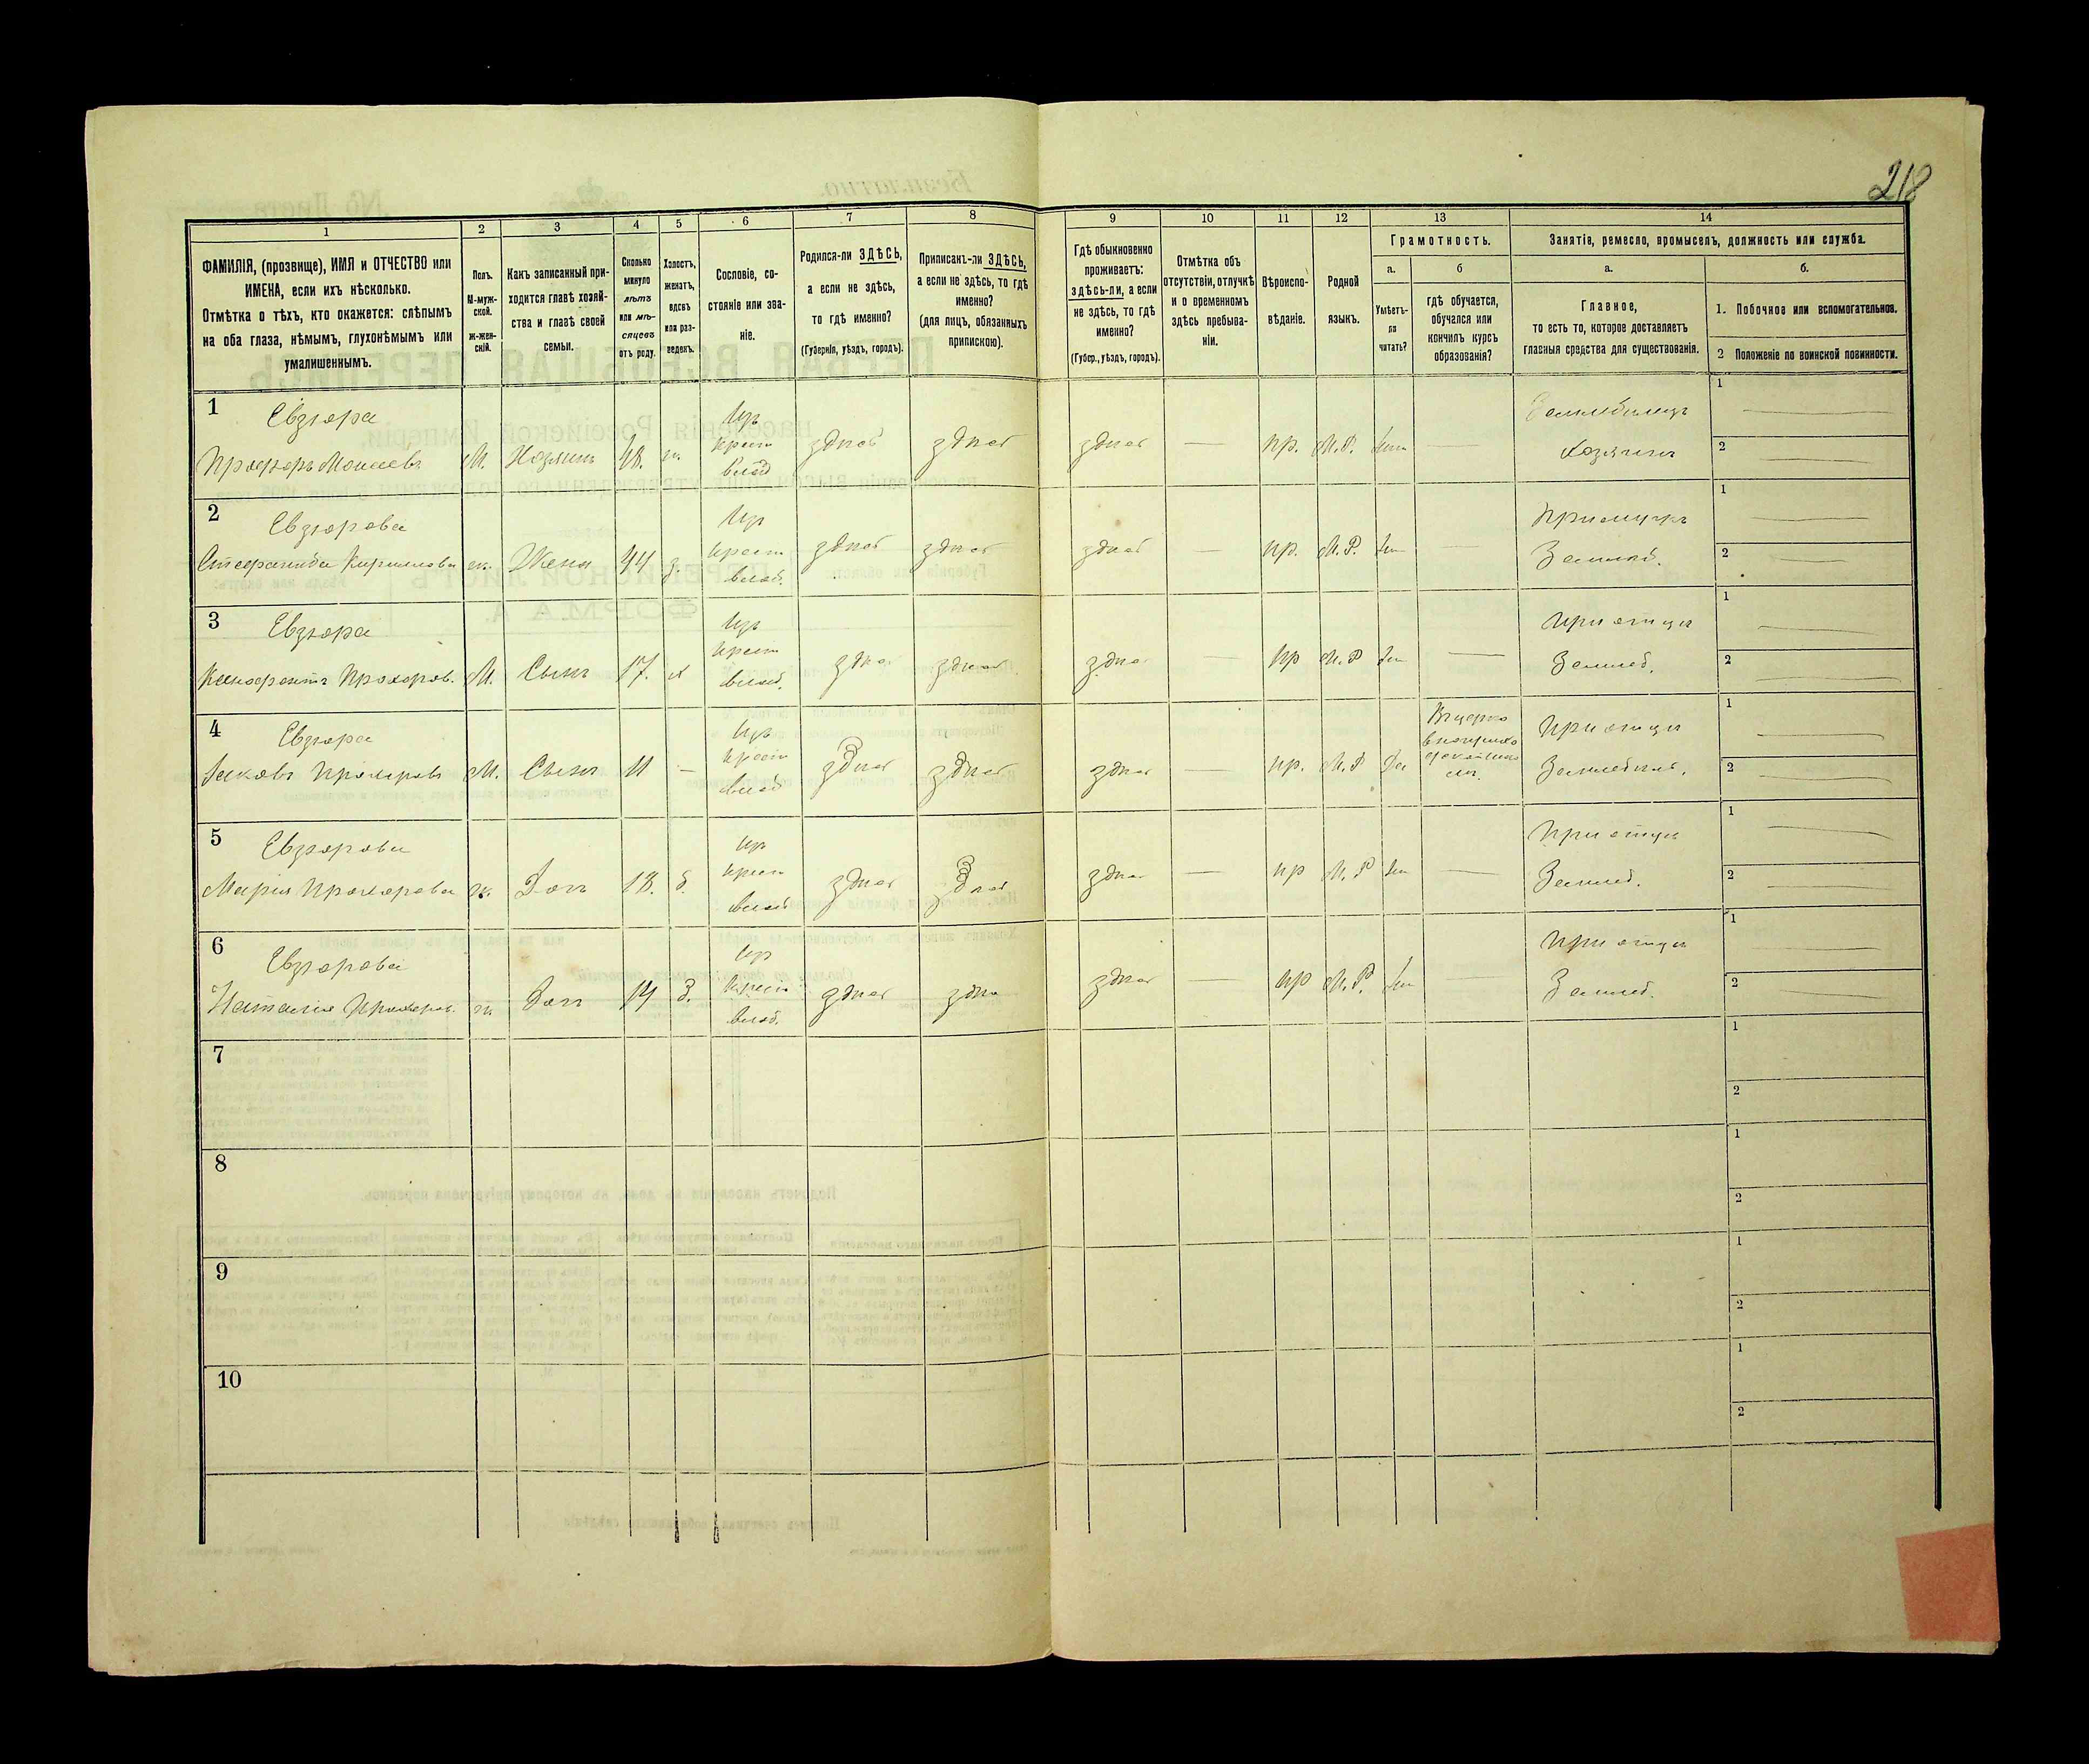 218
1
2
3
4
5
6
7
8
9
10
11
12
13
14
ФАМИЛІЯ, (прозвище), ИМЯ и ОТЧЕСТВО или
ИМЕНА, если ихъ нѣсколько.
Отмѣтка о тѣхъ, кто окажется: слѣпымъ
на оба глаза, нѣмымъ, глухонѣмымъ или
умалишеннымъ.
Полъ.
М-муж-
ской.
Ж-жен-
скій.
Какъ записанный при-
ходится главѣ хозяй-
ства и главѣ своей
семьи.
Сколько
минуло
лѣтъ
или мѣ-
сяцевъ
отъ роду.
Холостъ,
женатъ,
вдовъ
или раз-
веденъ.
Сословіе, со-
стояніе или зва-
ніе.
Родился-ли ЗДѢСЬ,
а если не здѣсь,
то гдѣ именно?
(Губернія, уѣздъ, городъ).
Приписанъ-ли ЗДѢСЬ,
а если не здѣсь, то гдѣ
именно?
(для лицъ, обязанныхъ
припискою).
Гдѣ обыкновенно
проживаетъ:
здѣсь-ли, а если
не здѣсь, то гдѣ
именно?
(Губер., уѣздъ, городъ).
Отмѣтка объ
отсутствіи, отлучкѣ
и о временномъ
здѣсь пребыва-
ніи.
Вѣроиспо-
вѣданіе.
Родной
языкъ.
Грамотность.
а.
Умѣетъ-
ли
читать?
б
гдѣ обучается,
обучался или
кончилъ курсъ
образованія?
Занятіе, ремесло, промыселъ, должность или служба.
а.
Главное,
то есть то, которое доставляетъ
главныя средства для существованія.
б.
1. Побочное или вспомогательное.
2 Положеніе по воинской повинности.
1
Евзюра
Прохоръ Моисеевъ
М. Хозяинъ 48. ж.
Изъ
крест
влад
здѣсь здѣсь здѣсь — пр. М.Р. —
хозяинъ
1
2
2
Евзюрова
Стефанида ж. Жена 44 з.
Изъ
крест
влад.
здѣсь здѣсь здѣсь — пр. М.Р. —
При мужѣ
Землед.
1
2
3
Евзюра
Ксенофонтъ Прохоров. М. Сынъ 17. х
Изъ
крест
влад.
здѣсь здѣсь здѣсь — пр М.Р —
При отцѣ
Землед.
1
2
4
Евзюра
Яковъ Прохоровъ М. Сынъ 11 —
Изъ
крест
влад
здѣсь здѣсь здѣсь — пр. М.Р Да
При отцѣ
1
2
5
Евзюрова
Марія Прохорова ж. Доч 18. д.
Изъ
крест
влад
здѣсь здѣсь здѣсь — пр М.Р —
При отцѣ
Землед.
1
2
6
Евзюрова
Наталія Прохоров. ж. Доч 14
Изъ
крест
влад.
здѣсь здѣсь здѣсь — пр М.Р. —
При отцѣ
Землед.
1
2
7
1
2
8
1
2
9
1
2
10
1
2